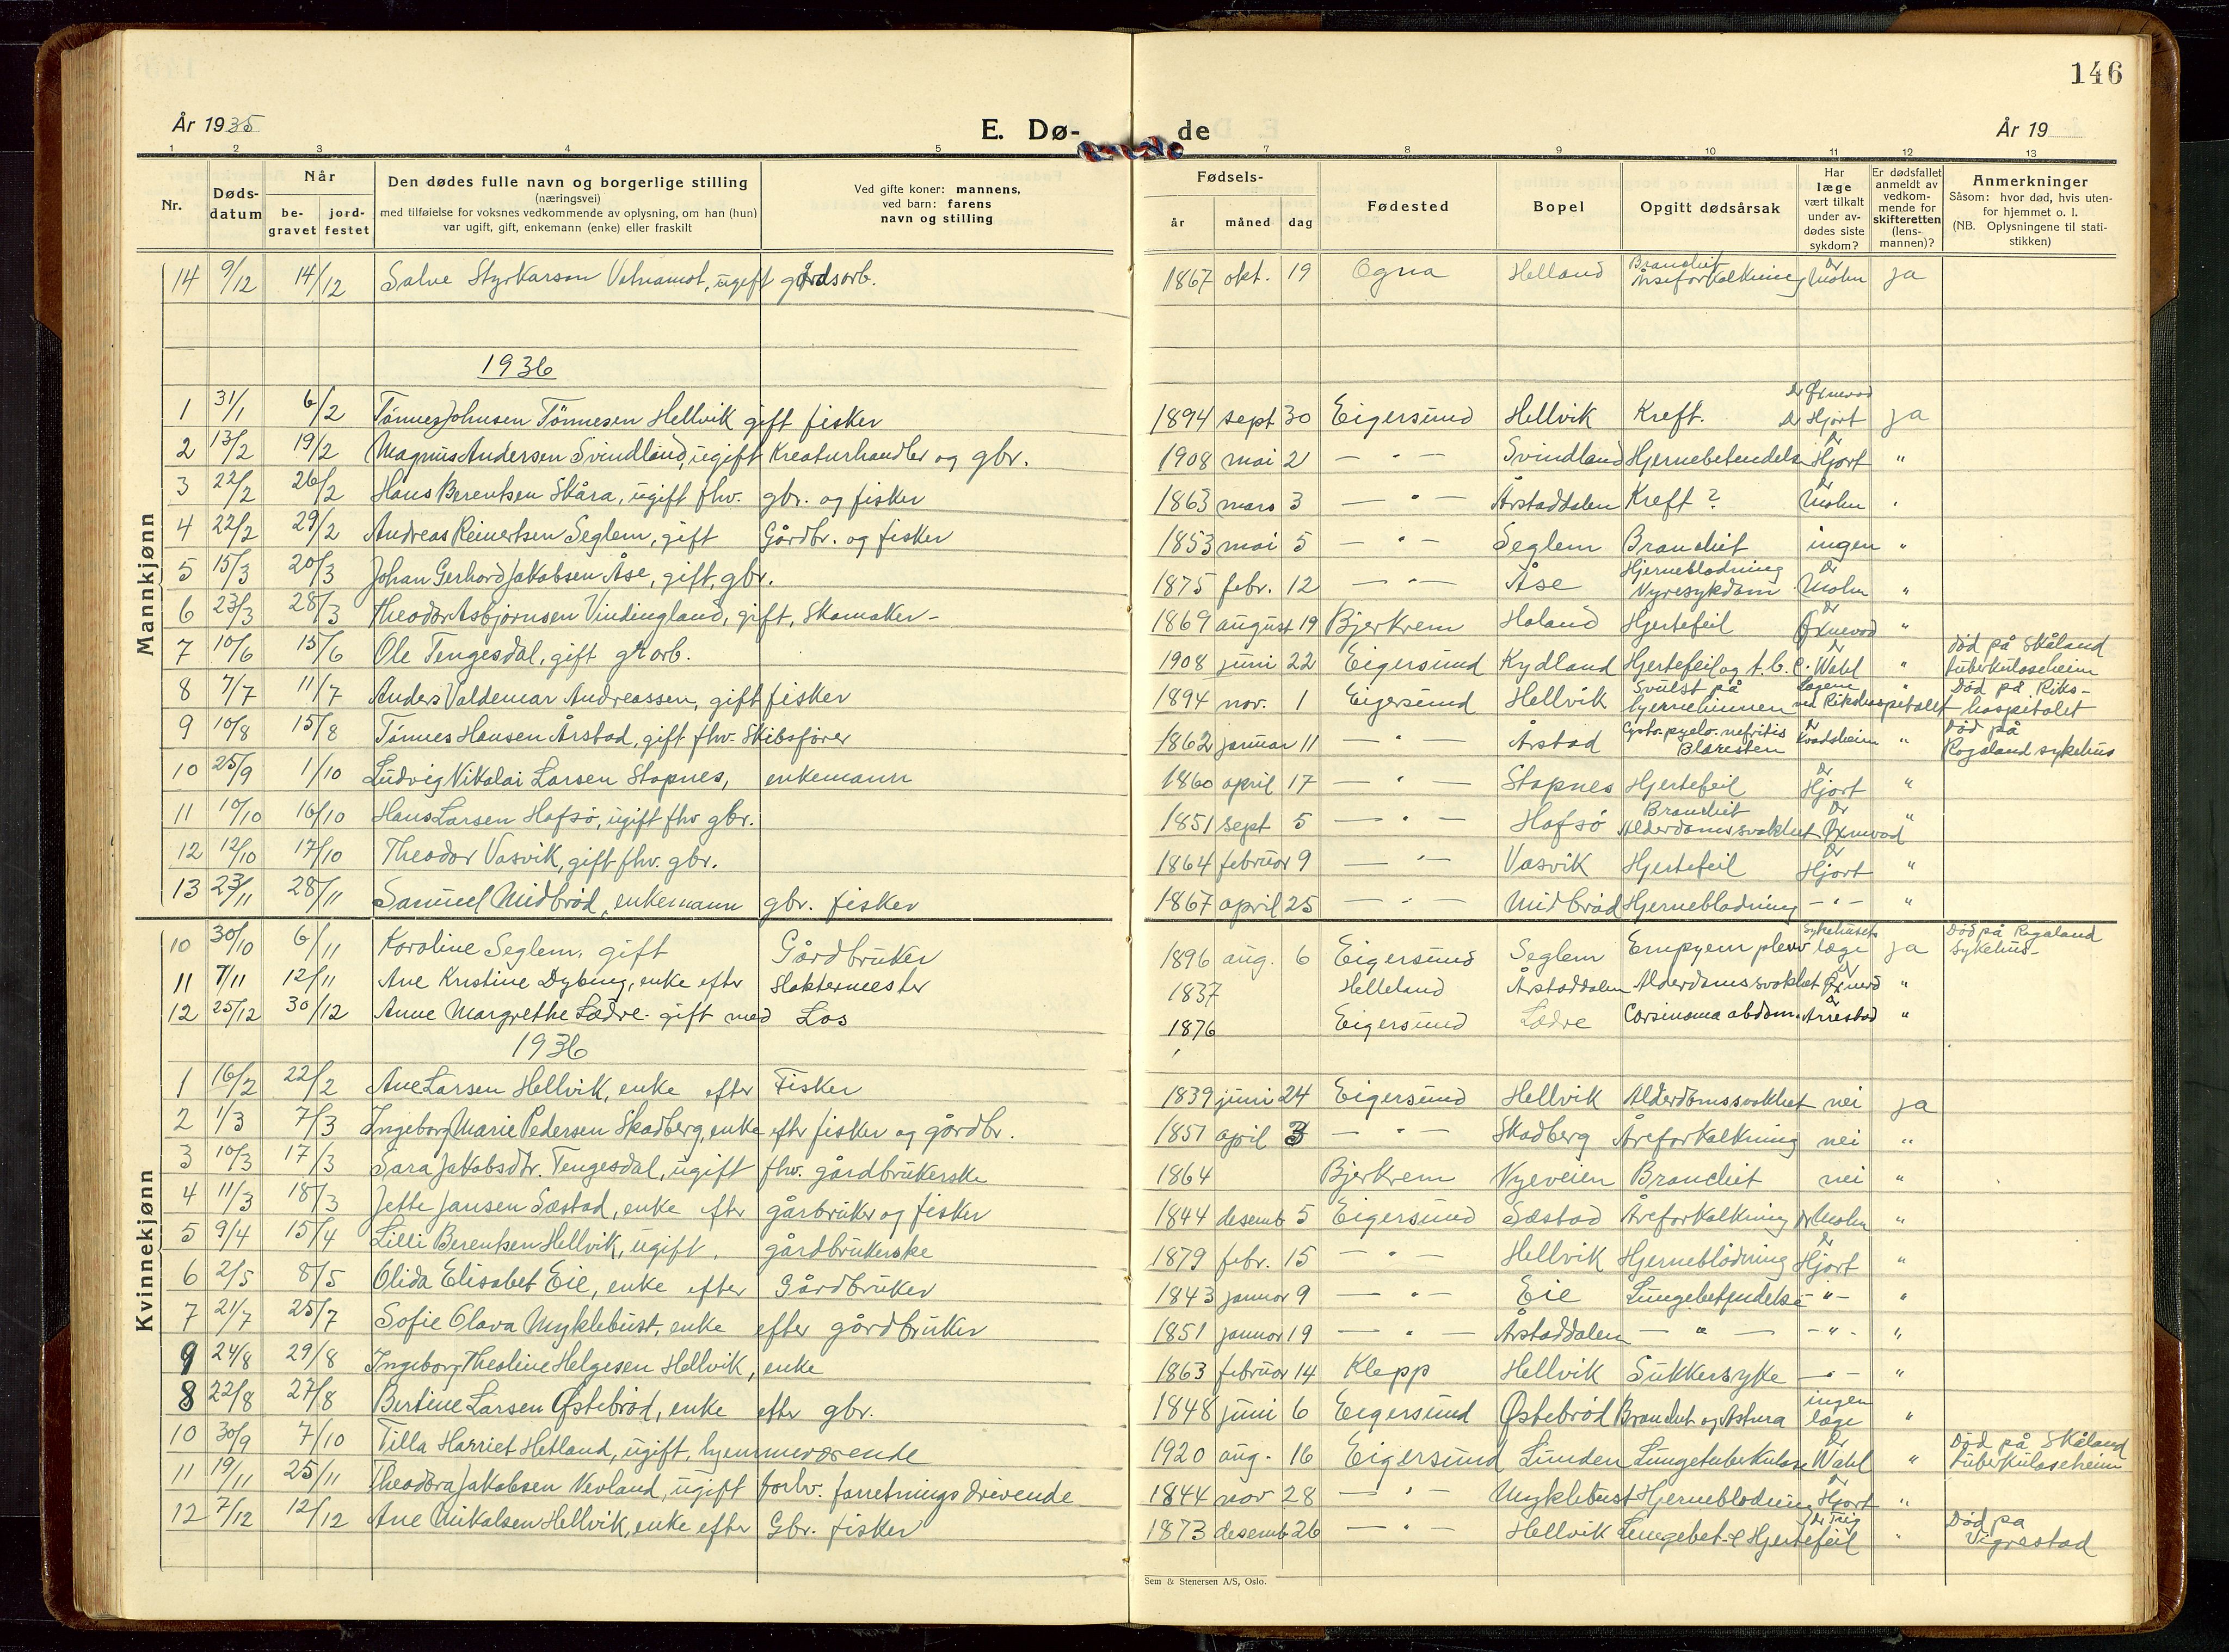 146
År 1935
E. Dø-
de
År 19
1 2 3 4 5 7 8 9 10 11 12 13
Nr.
Døds-
datum
Når
be-
gravet
jord-
festet
Den dødes fulle navn og borgerlige stilling
(næringsvei)
med tilføielse for voksnes vedkommende av oplysning, om han (hun)
var ugift, gift, enkemann (enke) eller fraskilt
Ved gifte koner: mannens,
ved barn: farens
navn og stilling
Fødsels-
år
måned
dag
Fødested
Bopel
Opgitt dødsårsak
Har
læge
vært tilkalt
under av-
dødes siste
sykdom?
Er dødsfallet
anmeldt av
vedkom-
mende for
skifteretten
(lens-
mannen)?
Anmerkninger
Såsom: hvor død, hvis uten-
for hjemmet o. l.
(NB. Oplysningene til stati-
stikken)
Mannkjønn
14 9/12 14/12 Salve Styrkarson Vatnamot, ugift gårdsarb. 1867 okt. 19 Ogna Helland Bronchit Åreforkalkning Dr Molm ja
1936
1 31/1 6/2 Tönnes Johnsen Tönnesen Hellvik gift fisker 1894 sept 30 Eigersund Hellvik Kreft. Dr Øxnevad Dr Hjort ja
2 13/2 19/2 Magnus Andersen Svindland, ugift Kreaturhandler og gbr. 1908 mai 2 — " — Svindland Hjernebetendelse Dr Hjort "
3 22/2 26/2 Hans Berentsen Skåra, ugift fhv. gbr. og fisker 1863 mars 3 — " — Årstaddalen Kreft ? Dr Molm "
4 22/2 29/2 Andreas Reinertsen Seglem, gift Gårdbr. og fisker 1853 mai 5 — " — Seglem Bronchit ingen "
5 15/3 20/3 Johan Gerhard Jakobsen Åse, gift, gbr. 1875 febr. 12 — " — Åse Hjerneblodning Nyresykdom Dr Molm "
6 23/3 28/3 Theodor Asbjørnsen Vindingland, gift, Skomaker - 1869 august 19 Bjerkrem Holand Hjertefeil Dr Øxnevad "
7 10/6 15/6 Ole Tengesdal, gift arb. 1908 juni 22 Eigersund Kydland Hjertefeil og t.b.c. Dr Wahl " Død på Skåland tuberkuloseheim
8 7/7 11/7 Anders Valdemar Andreassen, gift fisker 1894 nov. 1 Eigersund Hellvik Svulst på hjernehinnen Lægene ved Rikshospitalet " Død på Riks- hospitalet
9 10/8 15/8 Tönnes Hansen Årstad, gift fhv. Skibsfører 1862 januar 11 — " Årstad Cysto-pyelo-nefritis Blæresten Dr Kvadsheim " Død på Rogaland sykehus
10 25/9 1/10 Ludvig Nikolai Larsen Stapnes, enkemann 1860 april 17 — " — Stapnes Hjertefeil Dr Hjort "
11 10/10 16/10 Hans Larsen Hafsø, ugift fhv gbr. 1851 sept 5 — " — Hafsø Bronchit Alderdomssvakhet Dr Øxnevad "
12 12/10 17/10 Theodor Vasvik, gift fhv. gbr. 1864 februar 9 — " — Vasvik Hjertefeil Dr Hjort "
13 23/11 28/11 Samuel Midbrød, enkemann gbr. fisker 1867 april 25 — " — Midbrød Hjerneblodning — " — "
Kvinnekjønn
10 30/10 6/11 Karoline Seglem, gift Gårdbruker 1896 aug. 6 Eigersund Seglem Empyem pleur Sykehusets læge ja Død på Rogaland Sykehus-
11 7/11 12/11 Ane Kristine Dybing, enke efter Slaktermester 1837 Helleland Årstaddalen Alderdomssvakhet Dr "
12 25/12 30/12 Anne Margrethe Lædre - gift med Los 1876 Eigersund Lædre Carsinoma abdom. Dr Årrestad "
1936
1 16/2 22/2 Ane Larsen Hellvik, enke efter Fisker 1839 juni 24 Eigersund Hellvik Alderdomssvakhet nei ja
2 1/3 7/3 Ingeborg Marie Pedersen Skadberg, enke efter fisker og gårdbr. 1851 april 3 — " — Skadberg Åreforkalkning nei "
3 10/3 17/3 Sara Jakobsdtr. Tengesdal, ugift fhv. gårdbrukerske 1864 Bjerkrem Nyeveien Bronchit nei "
4 11/3 18/3 Jette Jansen Sæstad, enke efter gårbruker og fisker 1844 desemb 5 Eigersund Sæstad Åreforkalkning Dr Molm "
5 9/4 15/4 Lilli Berentsen Hellvik, ugift. gårdbrukerske 1879 febr. 15 — " — Hellvik Hjerneblødning Dr Hjort "
6 2/5 8/5 Olida Elisabet Eie, enke efter Gårdbruker 1843 januar 9 — " — Eie Lungebetendelse — " — "
7 21/7 25/7 Sofie Olava Myklebust, enke efter gårdbruker 1851 januar 19 — " — Årstaddalen — " — — " - "
9 24/8 29/8 Ingeborg Theoline Helgesen Hellvik, enke 1863 februar 14 Klepp Hellvik Sukkersyke — " — "
8 22/8 27/8 Bertine Larsen Østebrød, enke efter gbr. 1848 juni 6 Eigersund Østebrød Bronchit og Astma ingen læge "
10 30/9 7/10 Tilla Harriet Hetland, ugift, hjemmeværende 1920 aug. 16 Eigersund Lunden Lungetuberkulose Dr Wahl " Død på Skåland tuberkuloseheim
11 19/11 25/11 Theodora Jakobsen Nevland, ugift forhv. forretningsdrivende 1844 nov 28 — " — Myklebust Hjerneblodning Dr Hjort "
12 7/12 12/12 Ane Mikalsen Hellvik, enke efter Gbr. fisker 1873 desemb 26 — " — Hellvik Lungebet. & Hjertefeil Dr " Død på Vigrestad
Sem & Stenersen A/S, Oslo.